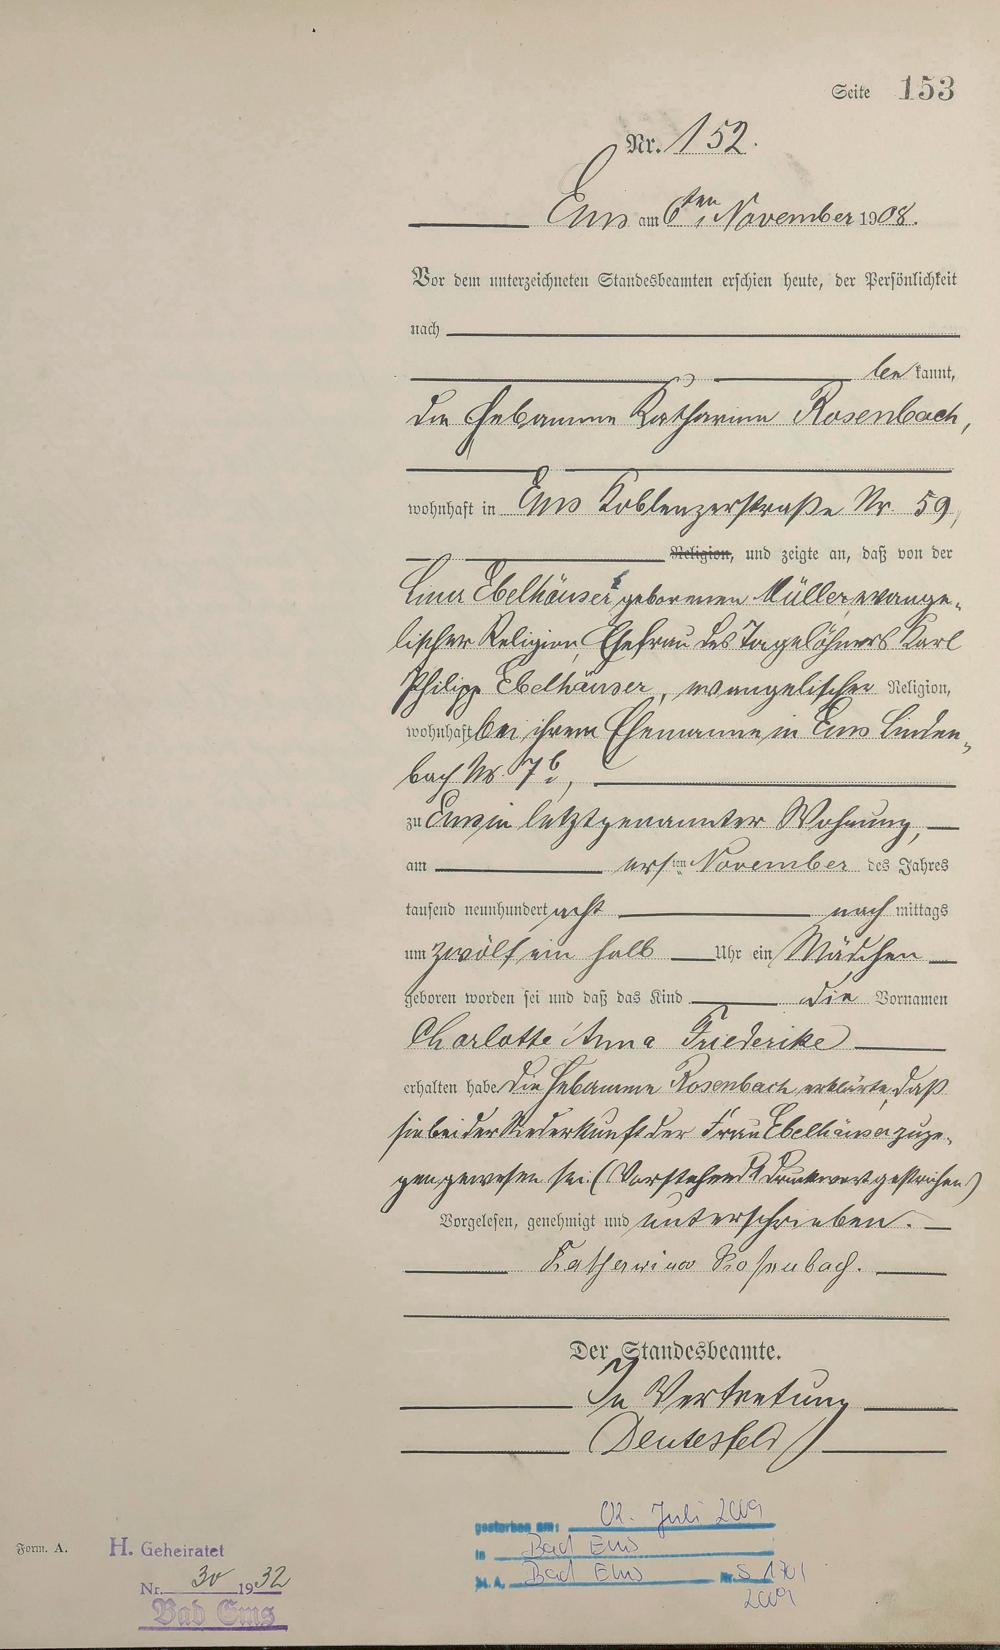 Seite 153
Nr. 152.
Ems am 6ten November 1908.
Vor dem unterzeichneten Standesbeamten erschien heute, der Persönlichkeit
nach
bekannt,
die Hebamme Katharina Rosenbach,
wohnhaft in Ems Koblenzerstraße Nr 59,
Religion, und zeigte an, daß von der
Ebelhäuser geborenen Müller, evange-
lischer Religion, Ehefrau des Tagelöhners Karl
Philipp Ebelhäuser, evangelischer Religion,
wohnhaft bei ihrem Ehemanne in Ems Linden-
bach Nr. 7b,
zu Ems in letztgenannter Wohnung,
am ersten November des Jahres
tausend neunhundert acht nachmittags
um zwölf ein halb Uhr ein Mädchen
geboren worden sei und daß das Kind die Vornamen
Charlotte Anna Friederike
erhalten habe. Die Hebamme Rosenbach erklärte, daß
sie bei der Niederkunft der Frau Ebelhäuser zuge-
gen gewesen sei. (Vorstehend 1 Druckwort gestrichen)
Vorgelesen, genehmigt und unterschrieben.
Katharina Rosenbach.
Der Standesbeamte.
In Vertretung
gestorben am: 02. Juli 2009
in Bad Ems
St. A. Bad Ems Nr. S 1701
2009
Form. A.
H. Geheiratet
Nr. 30 1932
Bad Ems